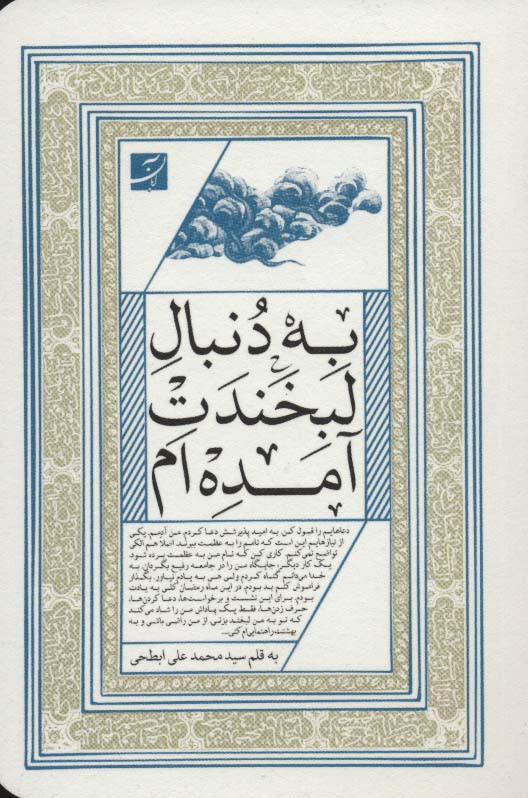 به دُنبالِ
لبخَندَت
آمده‌ام
دعاهایم را قبول کن به امید پذیرشش دعا کردم. من آدمم. یکی
از نیازهایم این است که نامم را به عظمت ببرند. اصلا هم الکی
تواضع نمی‌کنم. کاری کن که نام من به عظمت برده شود.
یک کار دیگر، جایگاه من را در جامعه رفیع بگردان. به
خدا می‌دانم گناه کردم ولی هی به یادم نیاور. بگذار
فراموش کنم بد بودم. در این ماه رمضان کلی به یادت
بودم. برای این نشست و برخواست‌ها، دعا کردن‌ها،
حرف زدن‌ها، فقط یک پاداش من را شاد می‌کند
که تو به من لبخند بزنی. از من راضی باشی و به
بهشتت راهنمایی‌ام کنی...
به قلم سید محمد علی ابطحی